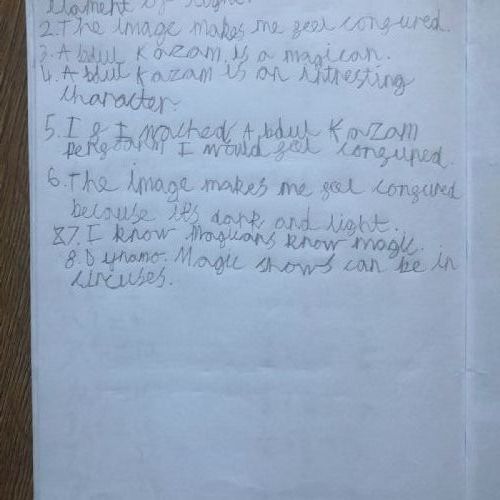 2. The image makes me feel confured.
3. Abdul Kazam is a magican.
4. Abdul Kazam is an intresting
character
5. I f I wached Abdul Kazam
perform I would feel confured.
6. The image makes me feel confured
because its dark and light.
87. I know magicans know magic.
8. Dynamo. Magic shows can be in
circuses.